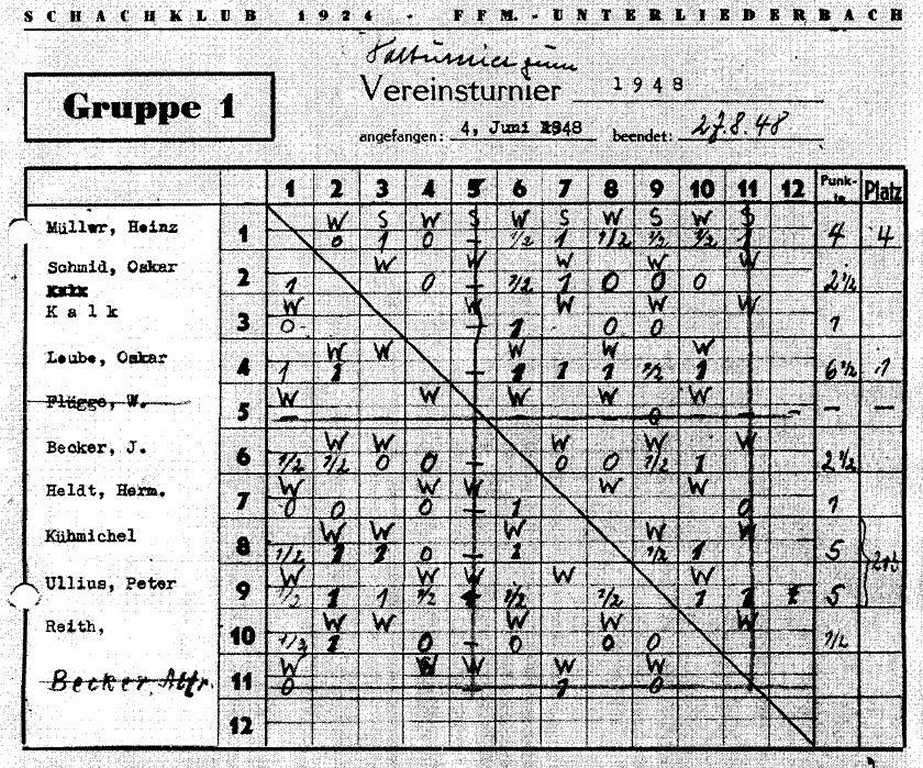 SCHACHKLUB 1924 - FFM.-UNTERLIEDERBACH
Gruppe 1
zum
Vereinsturnier 1948
angefangen: 4, Juni 1948 beendet: 27.8.48
1 2 3 4 5 6 7 8 9 10 11 12 Punk-te Platz
Müller, Heinz 1 W S W S W S W S W S
0 1 0 - 1/2 1 1/2 1/2 1/2 1 4 4
Schmid, Oskar 2 W W W W W
1 0 - 1/2 1 0 0 0 2 1/2
Kalk 3 W W W W W
0 - 1 0 0 1
Leube, Oskar 4 W W W W W
1 1 1 1 1 1/2 1 6 1/2 1
Flügge, W. 5 W W W W W
- - 0 - - -
Becker, J. 6 W W W W W
1/2 1/2 0 0 - 0 0 1/2 1 2 1/2
Heldt, Herm. 7 W W W W W
0 0 0 - 1 0 1
Kühmichel 8 W W W W W
1/2 1 1 0 - 1 1/2 1 5
Ullius, Peter 9 W W W W W
1/2 1 1 1/2 1/2 1/2 1 1 5
Reith, 10 W W W W W
1/2 1 0 - 0 0 0 1/2
Becker, Alfr. 11 W W W W W
0 - 1 0
12